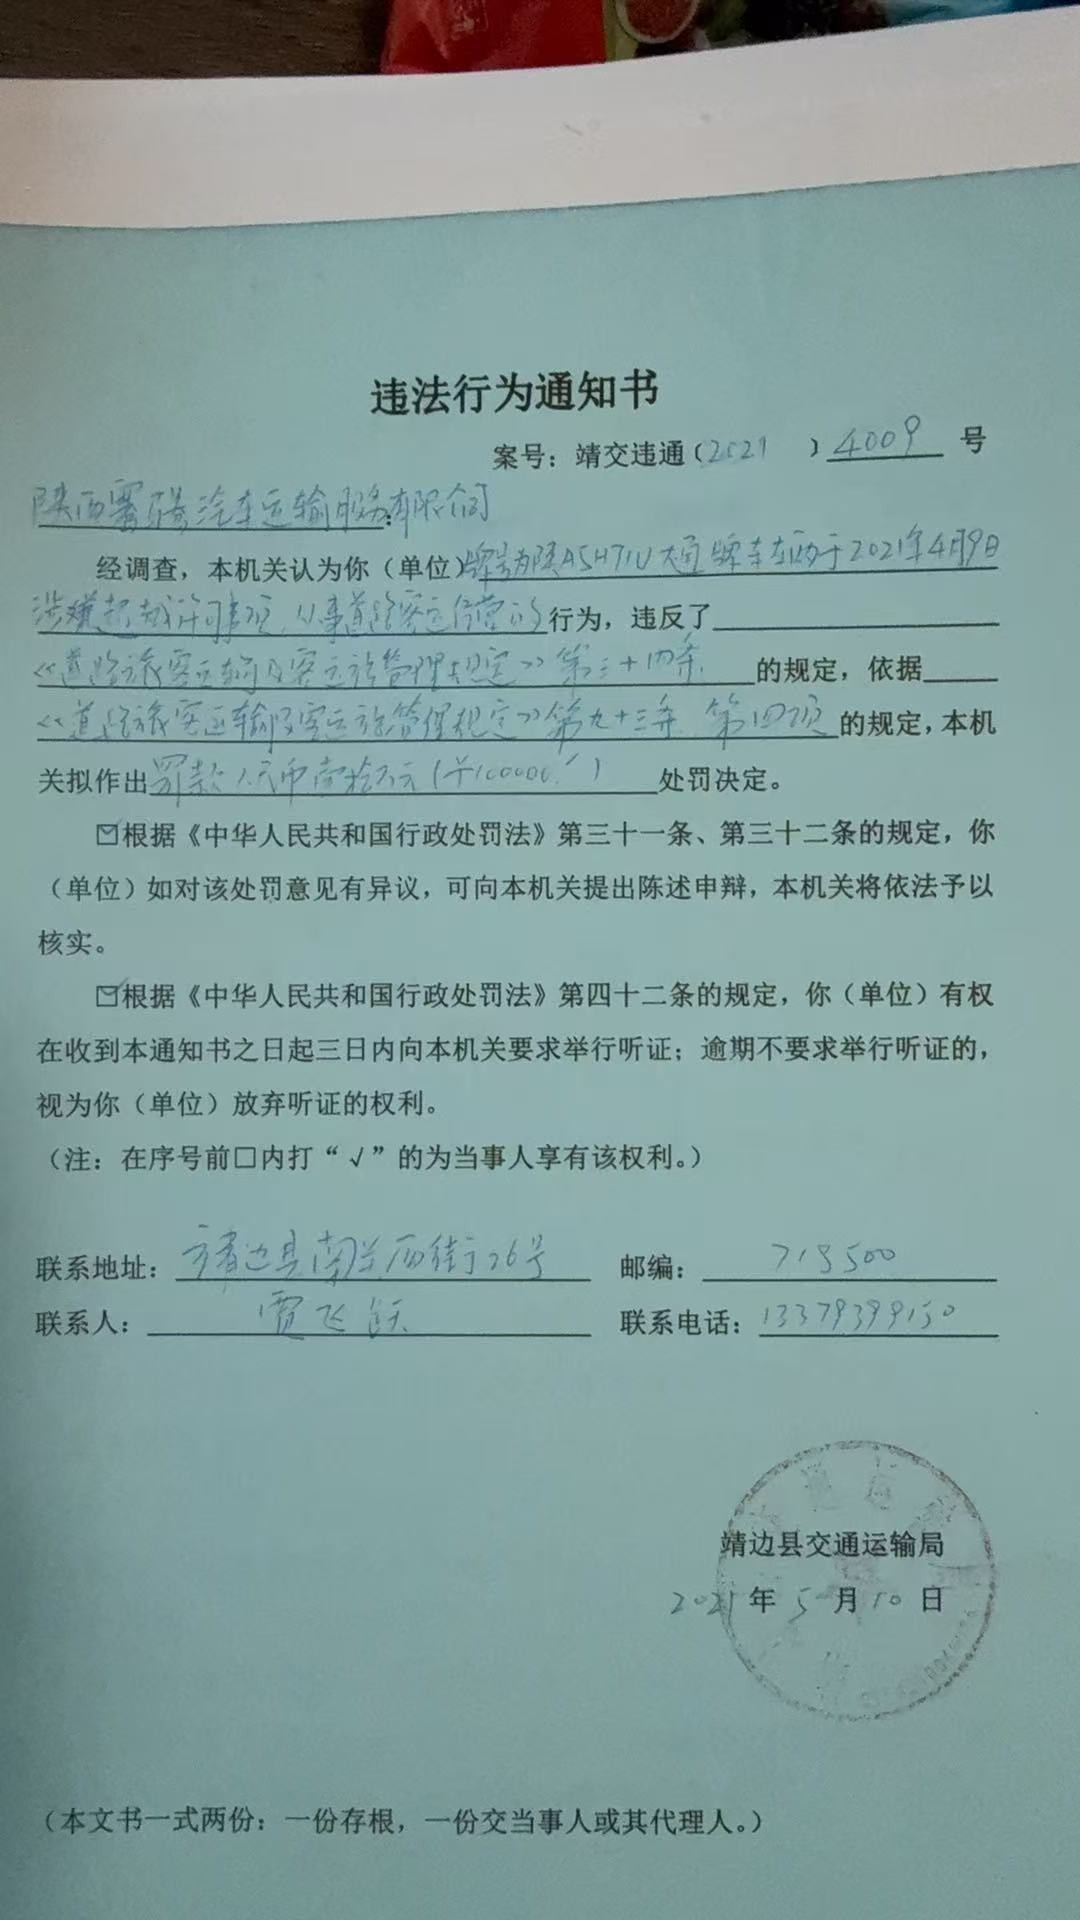 违法行为通知书
案号：靖交违通（2021 ）4009 号
陕西 汽车运输服务有限公司：
经调查，本机关认为你（单位）牌号为陕A5H71U大通牌车辆于2021年4月9日
涉嫌超越许可事项，从事道路客运经营的行为，违反了
《道路旅客运输及客运站管理规定》第三十四条 的规定，依据
《道路旅客运输及客运站管理规定》第九十三条 第四项 的规定，本机
关拟作出罚款人民币壹拾万元（￥100000.）处罚决定。
☑根据《中华人民共和国行政处罚法》第三十一条、第三十二条的规定，你
（单位）如对该处罚意见有异议，可向本机关提出陈述申辩，本机关将依法予以
核实。
☑根据《中华人民共和国行政处罚法》第四十二条的规定，你（单位）有权
在收到本通知书之日起三日内向本机关要求举行听证；逾期不要求举行听证的，
视为你（单位）放弃听证的权利。
（注：在序号前□内打“√”的为当事人享有该权利。）
联系地址：靖边县南关西街26号 邮编：718500
联系人：贾飞跃 联系电话：13379399150
靖边县交通运输局
2021年5月10日
（本文书一式两份：一份存根，一份交当事人或其代理人。）